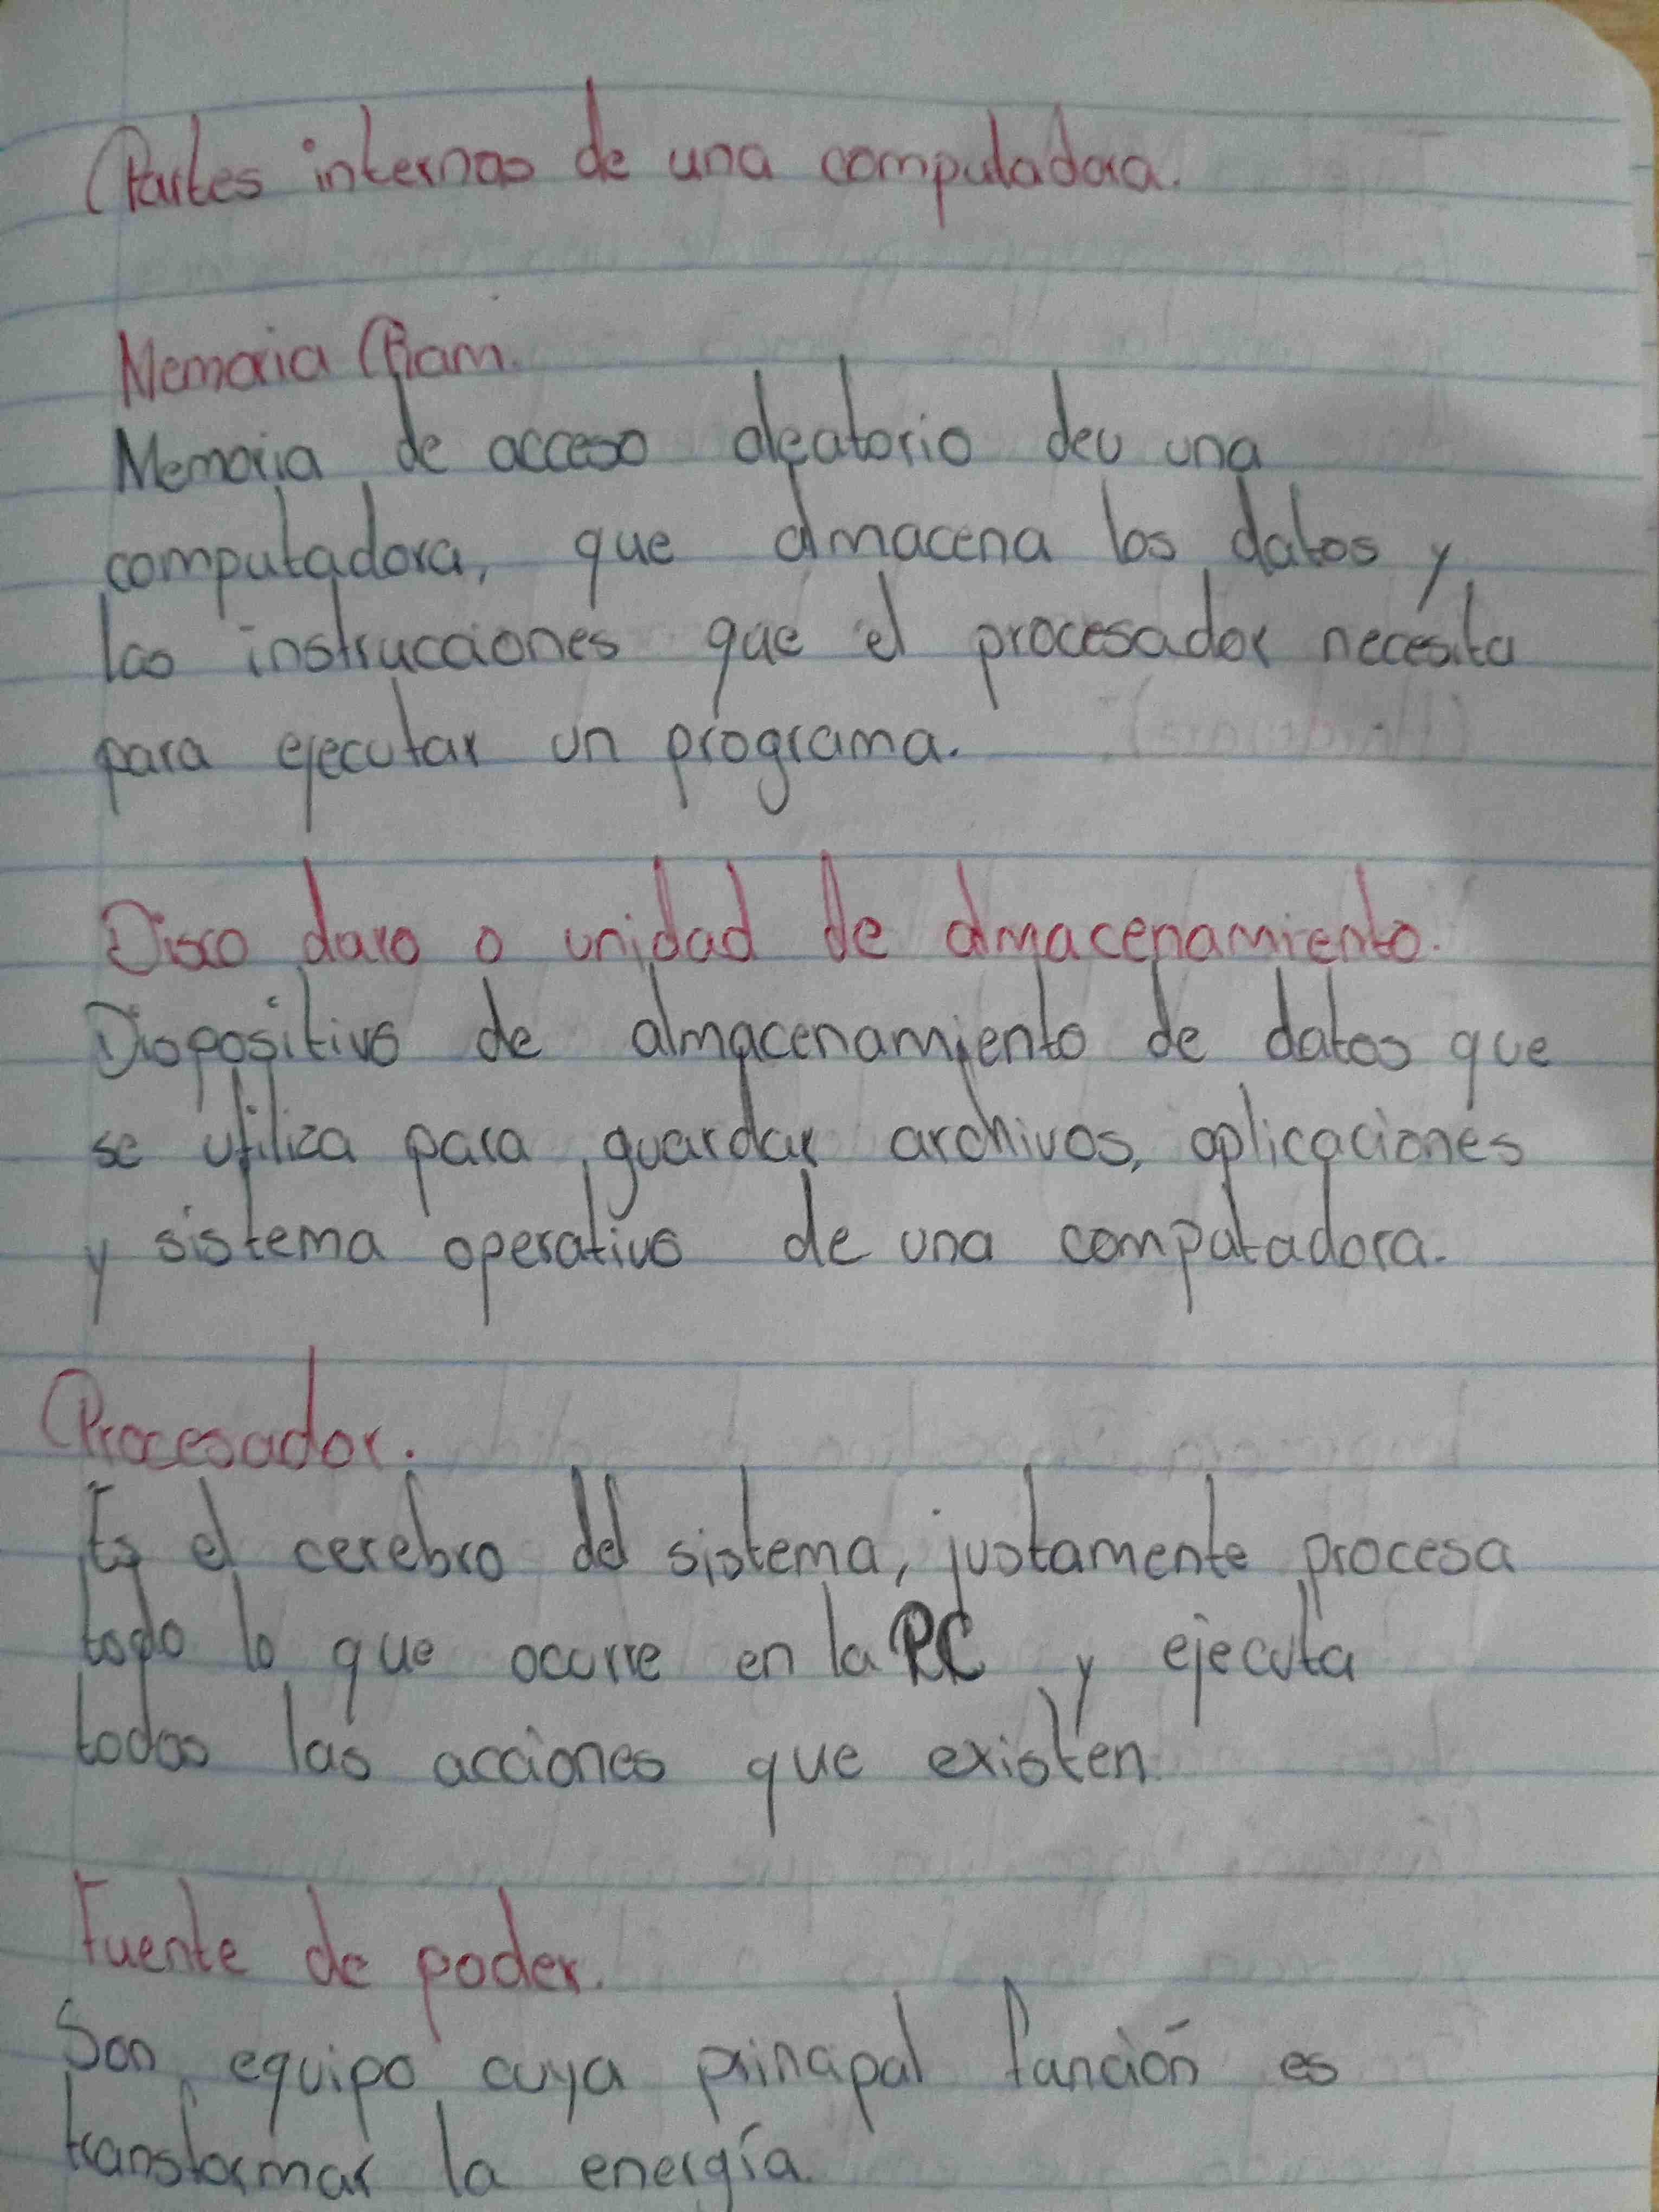 Partes internas de una computadora.
Memoria Ram.
Memoria de acceso aleatorio deu una
computadora, que almacena los datos y
las instrucciones que el procesador necesita
para ejecutar un programa.
Disco duro o unidad de almacenamiento.
Dispositivo de almacenamiento de datos que
se utiliza para guardar archivos, aplicaciones
y sistema operativo de una computadora.
Procesador.
Es el cerebro del sistema, justamente procesa
todo lo que ocurre en la PC y ejecuta
todas las acciones que existen
Fuente de poder.
Son equipo cuya principal función es
transformar la energía.